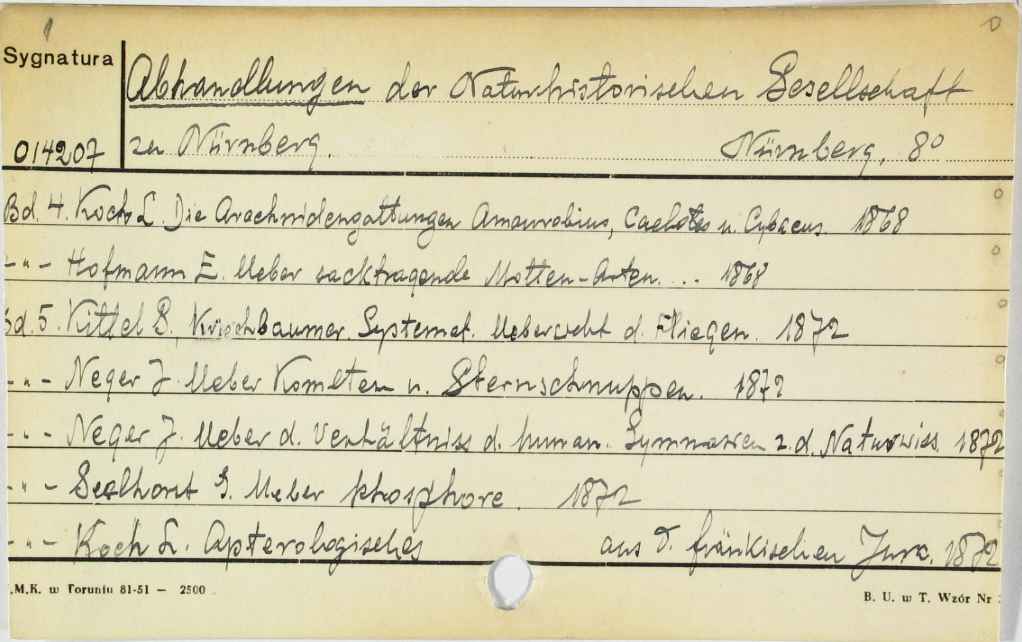 Sygnatura
Abhandlungen der Naturhistorischen Gesellschaft
014207 zu Nürnberg. Nürnberg. 8°
Bd. 4. Koch L. Die Arachnidengattungen Amaurobius, Caelotes u. Cybaeus. 1868
- " - Hofmann E. Ueber sacktragende Motten-Arten. .. 1868
Bd. 5. Kittel G., Kriechbaumer. Systemat. Uebersicht d. Fliegen. 1872
- " - Neger J. Ueber Kometen u. Sternschnuppen. 1872
- " - Neger J. Ueber d. Verhältniss d. human. Gymnasien z. d. Naturwiss. 1872
- " - Seelhorst G. Ueber Phosphore. 1872
- " - Koch L. Apterologisches aus d. fränkischen Jura. 1872
.M.K. w Toruniu 81-51 — 2500 B. U. w T. Wzór Nr